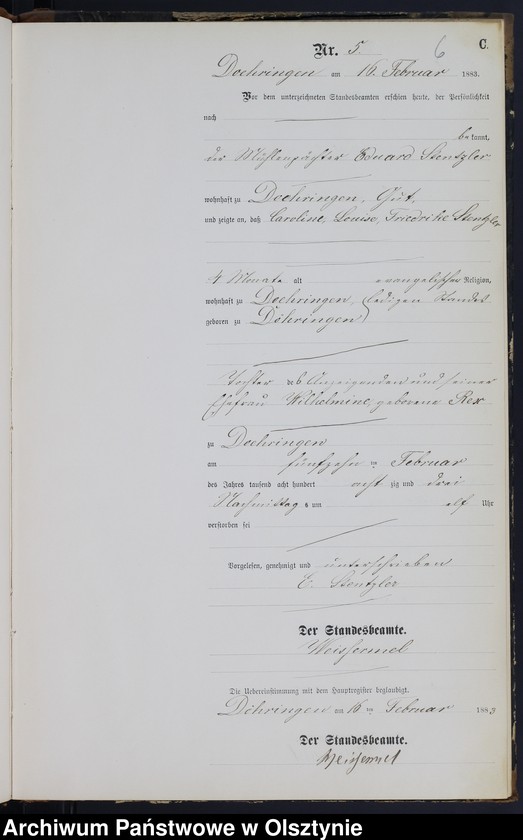 Nr. 5. 6 C.
Doehringen am 16. Februar 1883.
Vor dem unterzeichneten Standesbeamten erschien heute, der Persönlichkeit
nach
bekannt,
der Mühlenpächter Eduard Stentzler
wohnhaft zu Doehringen, Gut,
und zeigte an, daß Caroline, Louise, Friedrike Stentzler
4 Monate alt evangelischer Religion,
wohnhaft zu Doehringen, ledigen Standes
geboren zu Döhringen
Tochter des Anzeigenden und seiner
Ehefrau Wilhelmine, geborene Rex
zu Doehringen
am fünfzehn ten Februar
des Jahres tausend acht hundert achtzig und drei
Nachmittags um elf Uhr
verstorben sei
Vorgelesen, genehmigt und unterschrieben
E. Stentzler
Der Standesbeamte.
Weissermel
Die Uebereinstimmung mit dem Hauptregister beglaubigt.
Döhringen am 16 ten Februar 1883
Der Standesbeamte.
Weissermel
Archiwum Państwowe w Olsztynie